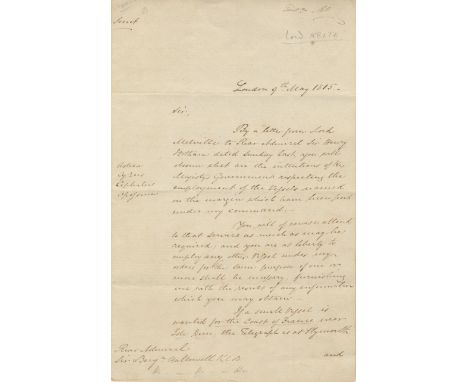 Secret
Lord KEITH
London 9th May 1815 -
Sir,
By a letter from Lord
Melville to Rear Admiral Sir Henry
Hotham dated Sunday last, you will
know what are the intentions of His
Majesty's Government respecting the
employment of the Vessels named
in the margin which have been put
under my command. -
You will of course attend
to that service as much as may be
required; and you are at liberty to
employ any other Vessel under my
orders for the same purpose if one or
more shall be necessary, furnishing
me with the results of any information
which you may obtain. -
If a small Vessel is
wanted for the Coast of France near
Isle Dieu, the Telegraph is at Plymouth
and
Rear Admiral
Sir Benjn Hallowell K.C.B.